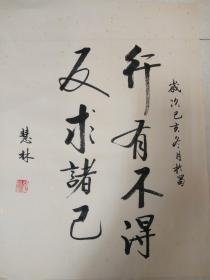 歲次己亥冬月於蜀
行有不得
反求諸己
慧林